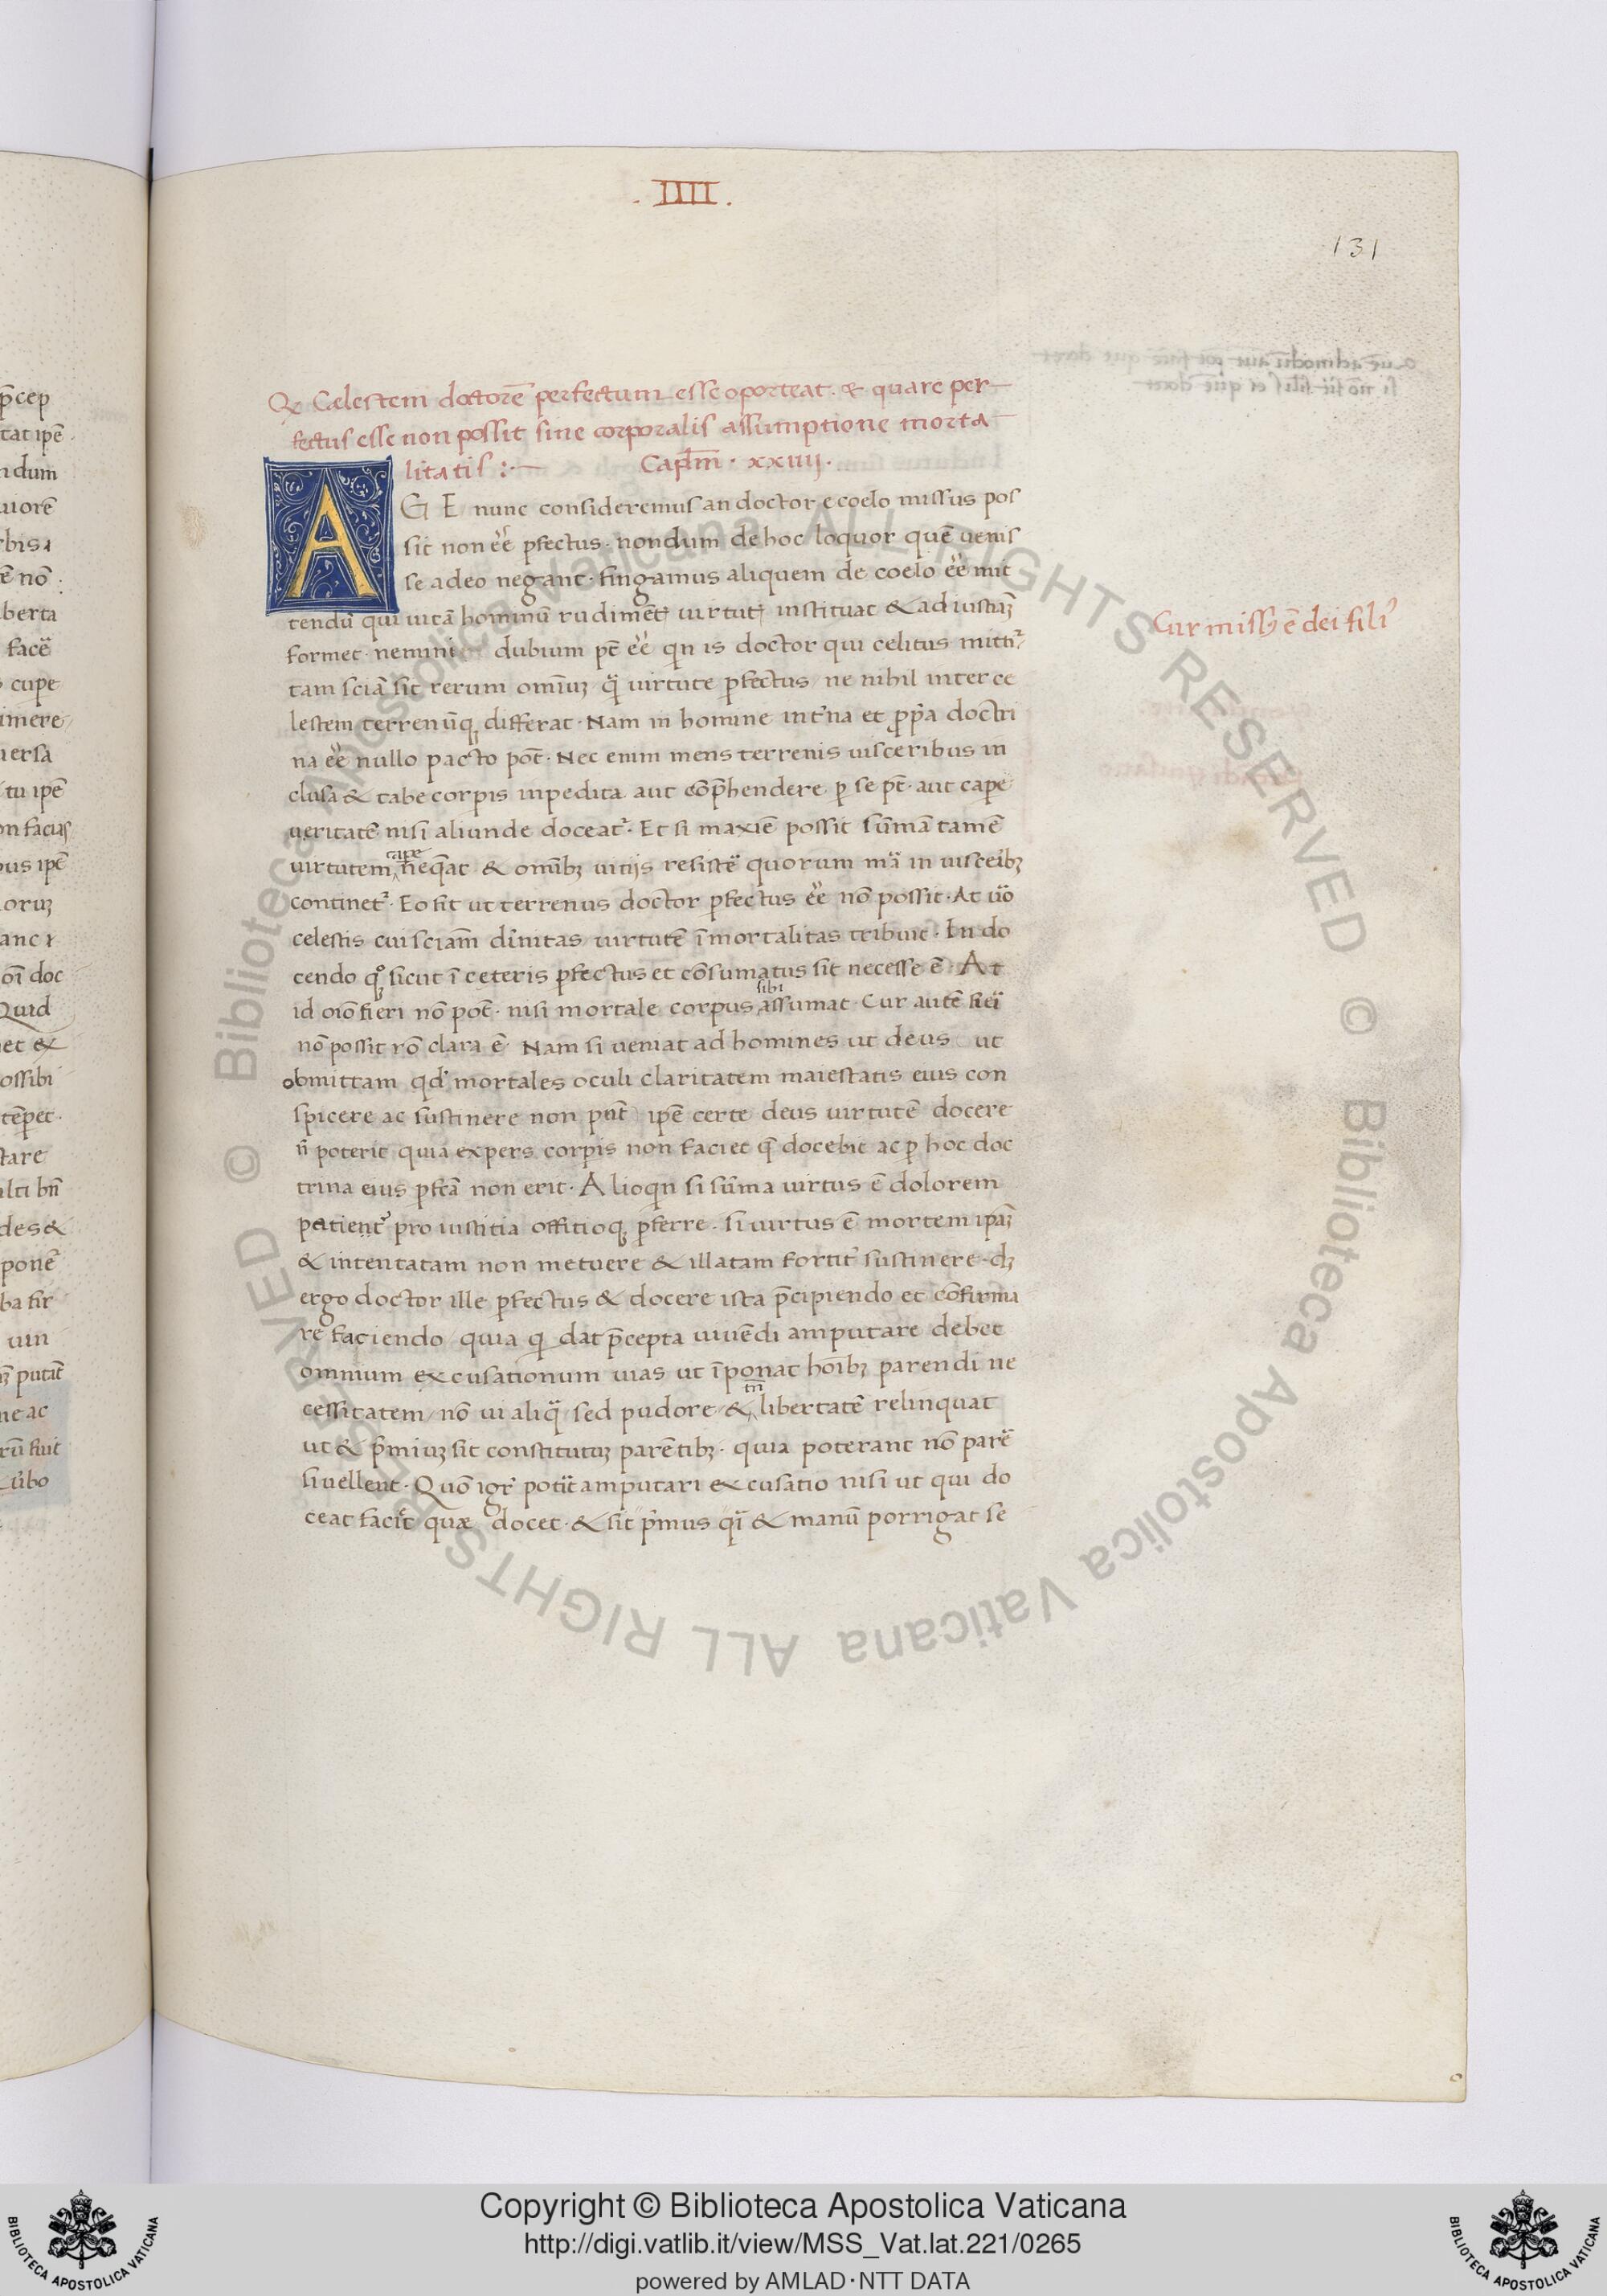 . IIII .
131
Qꝫ Cælestem doctorē perfectum esse oporteat. & quare per
fectus esse non possit sine corporalis assumptione morta
litatis :· Caplm̄ · xxiiij.
A GE nunc consideremus an doctor e coelo missus pos
sit non eē ꝑfectus · nondum de hoc loquor quē uenis
se adeo negant · fingamus aliquem de coelo eē mit
tendū qui uitā hominū rudimētꝭ uirtutꝭ instituat & ad iustiāꝫ
formet · nemini dubium pt̄ eē qn is doctor qui celitus mittit᷑
tam sciā sit rerum omīuꝫ q̄ uirtute ꝑfectus ne nihil inter ce
lestem terrenūqꝫ differat · Nam in homine int'na et ꝓpa doctri
na eē nullo pacto pōt · Nec enim mens terrenis uisceribus in
clusa & tabe corpis inpedita aut cōp̄hendere ꝑ se pt̄ · aut cape
ueritatē nisi aliunde doceat᷑ · Et si maxīe possit sūmā tamē
uirtutem cape neq̄at & omībꝫ uitijs resistē quorum mā in uisceribꝫ
continet᷑ · Eo fit ut terrenus doctor ꝑfectus eē nō possit · At uō
celestis cui sciam diuītas uirtutē īmortalitas tribuit · In do
cendo qꝫ sicut ī ceteris ꝑfectus et cōsumatus sit necesse ē · At
id oīo fieri nō pōt · nisi mortale corpus sibi assumat · Cur autē fieri
nō possit rō clara ē · Nam si ueniat ad homines ut deus ut
obmittam qd' mortales oculi claritatem maiestatis eius con
spicere ac sustinere non pn̄t ipē certe deus uirtutē docere
n̄ poterit quia expers corpis non faciet q̄ docebit ac ꝑ hoc doc
trina eius ꝑfcā non erit · Alioqn si sūma uirtus ē dolorem
patient᷑ pro iustitia offitioqꝫ ꝑferre · si uirtus ē mortem ipāꝫ
& intentatam non metuere & illatam fortit᷑ sustinere · dꝫ
ergo doctor ille ꝑfectus & docere ista p̄cipiendo et cōfirma
re faciendo quia q dat p̄cepta uiuēdi amputare debet
omnium excusationum uias ut īponat hoībꝫ parendi ne
cessitatem nō ui aliq̄ sed pudore & tn̄ libertatē relinquat
ut & p̄miuꝫ sit constitutuꝫ parētibꝫ · quia poterant nō parē
si uellent · Quō igr᷑ potit amputari excusatio nisi ut qui do
ceat faciat quæ docet · & sit p'mus qi & manū porrigat se
Cur missꝰ ē dei filiꝰ
Copyright © Biblioteca Apostolica Vaticana
http://digi.vatlib.it/view/MSS_Vat.lat.221/0265
powered by AMLAD·NTT DATA
© Biblioteca Apostolica Vaticana ALL RIGHTS RESERVED
© Biblioteca Apostolica Vaticana ALL RIGHTS RESERVED
BIBLIOTECA APOSTOLICA VATICANA
BIBLIOTECA APOSTOLICA VATICANA